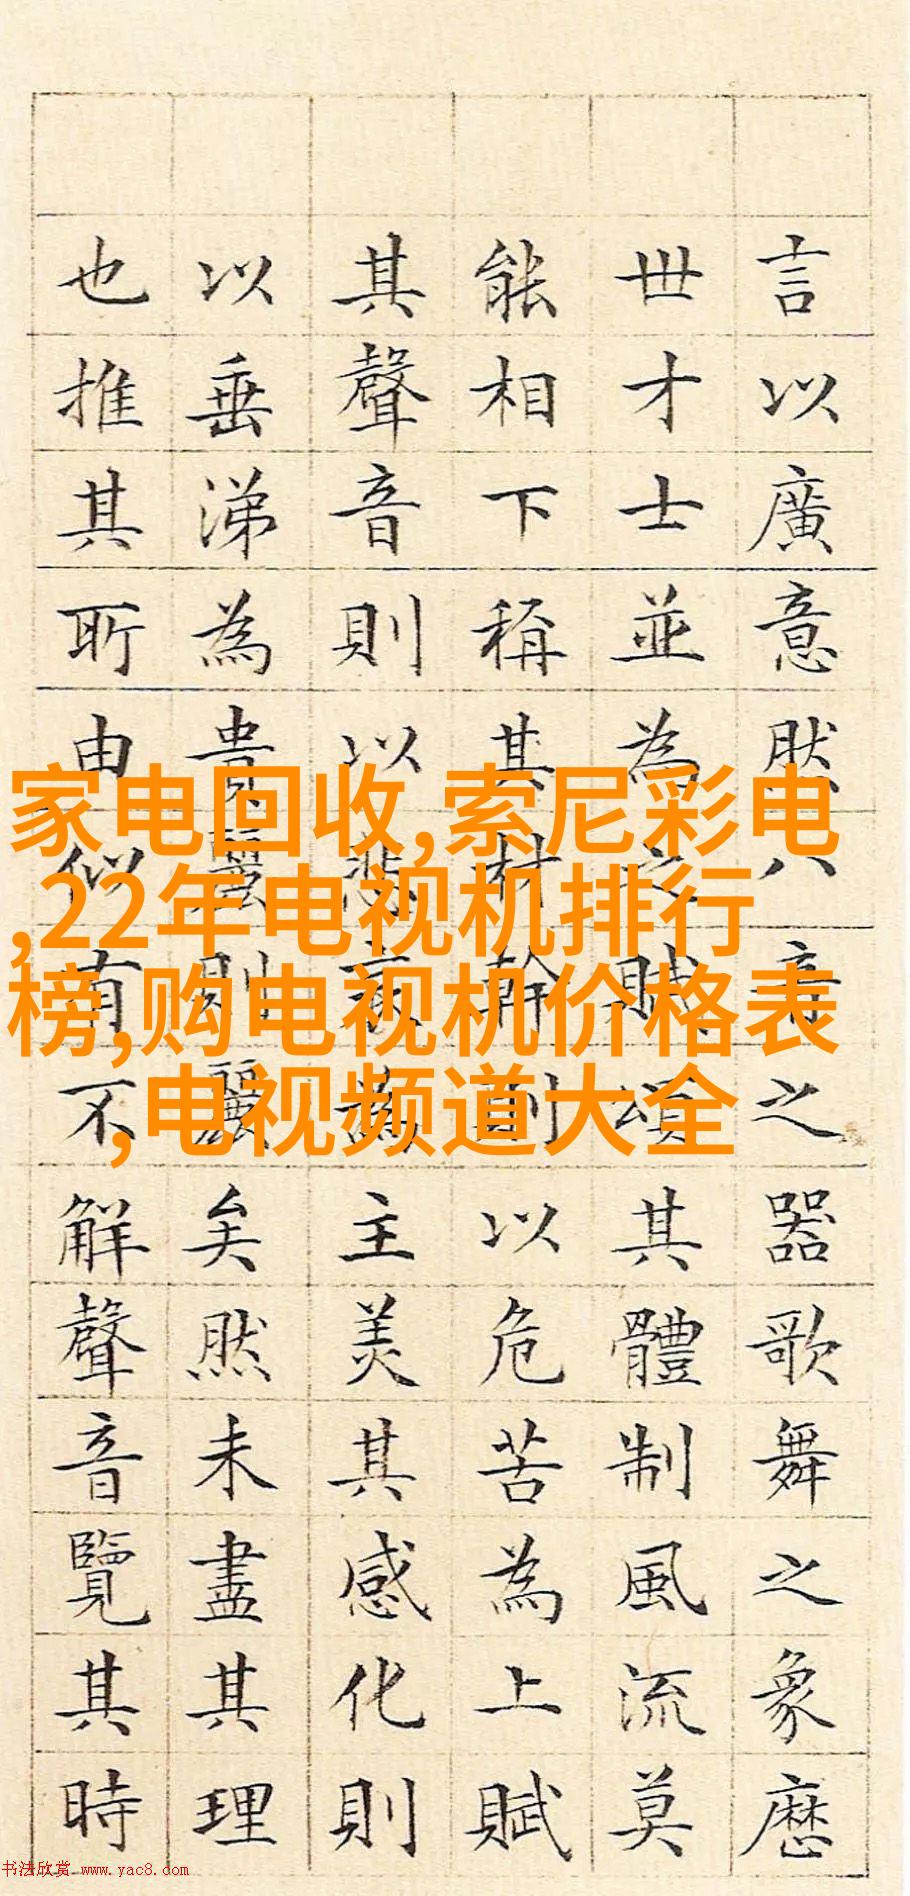 言以廣意然八音之器歌舞之象歷
世才士並為之賦頌其體制風流莫
能相下稱其材幹則以危苦為上賦
其聲音則以悲哀為主美其感化則
以垂涕為貴麗則麗矣然未盡其理
也推其所由似有不解聲音覽其時
家电回收,索尼彩电
,22年电视机排行
榜,购电视机价格表
,电视频道大全
书法欣赏 www.yac8.com